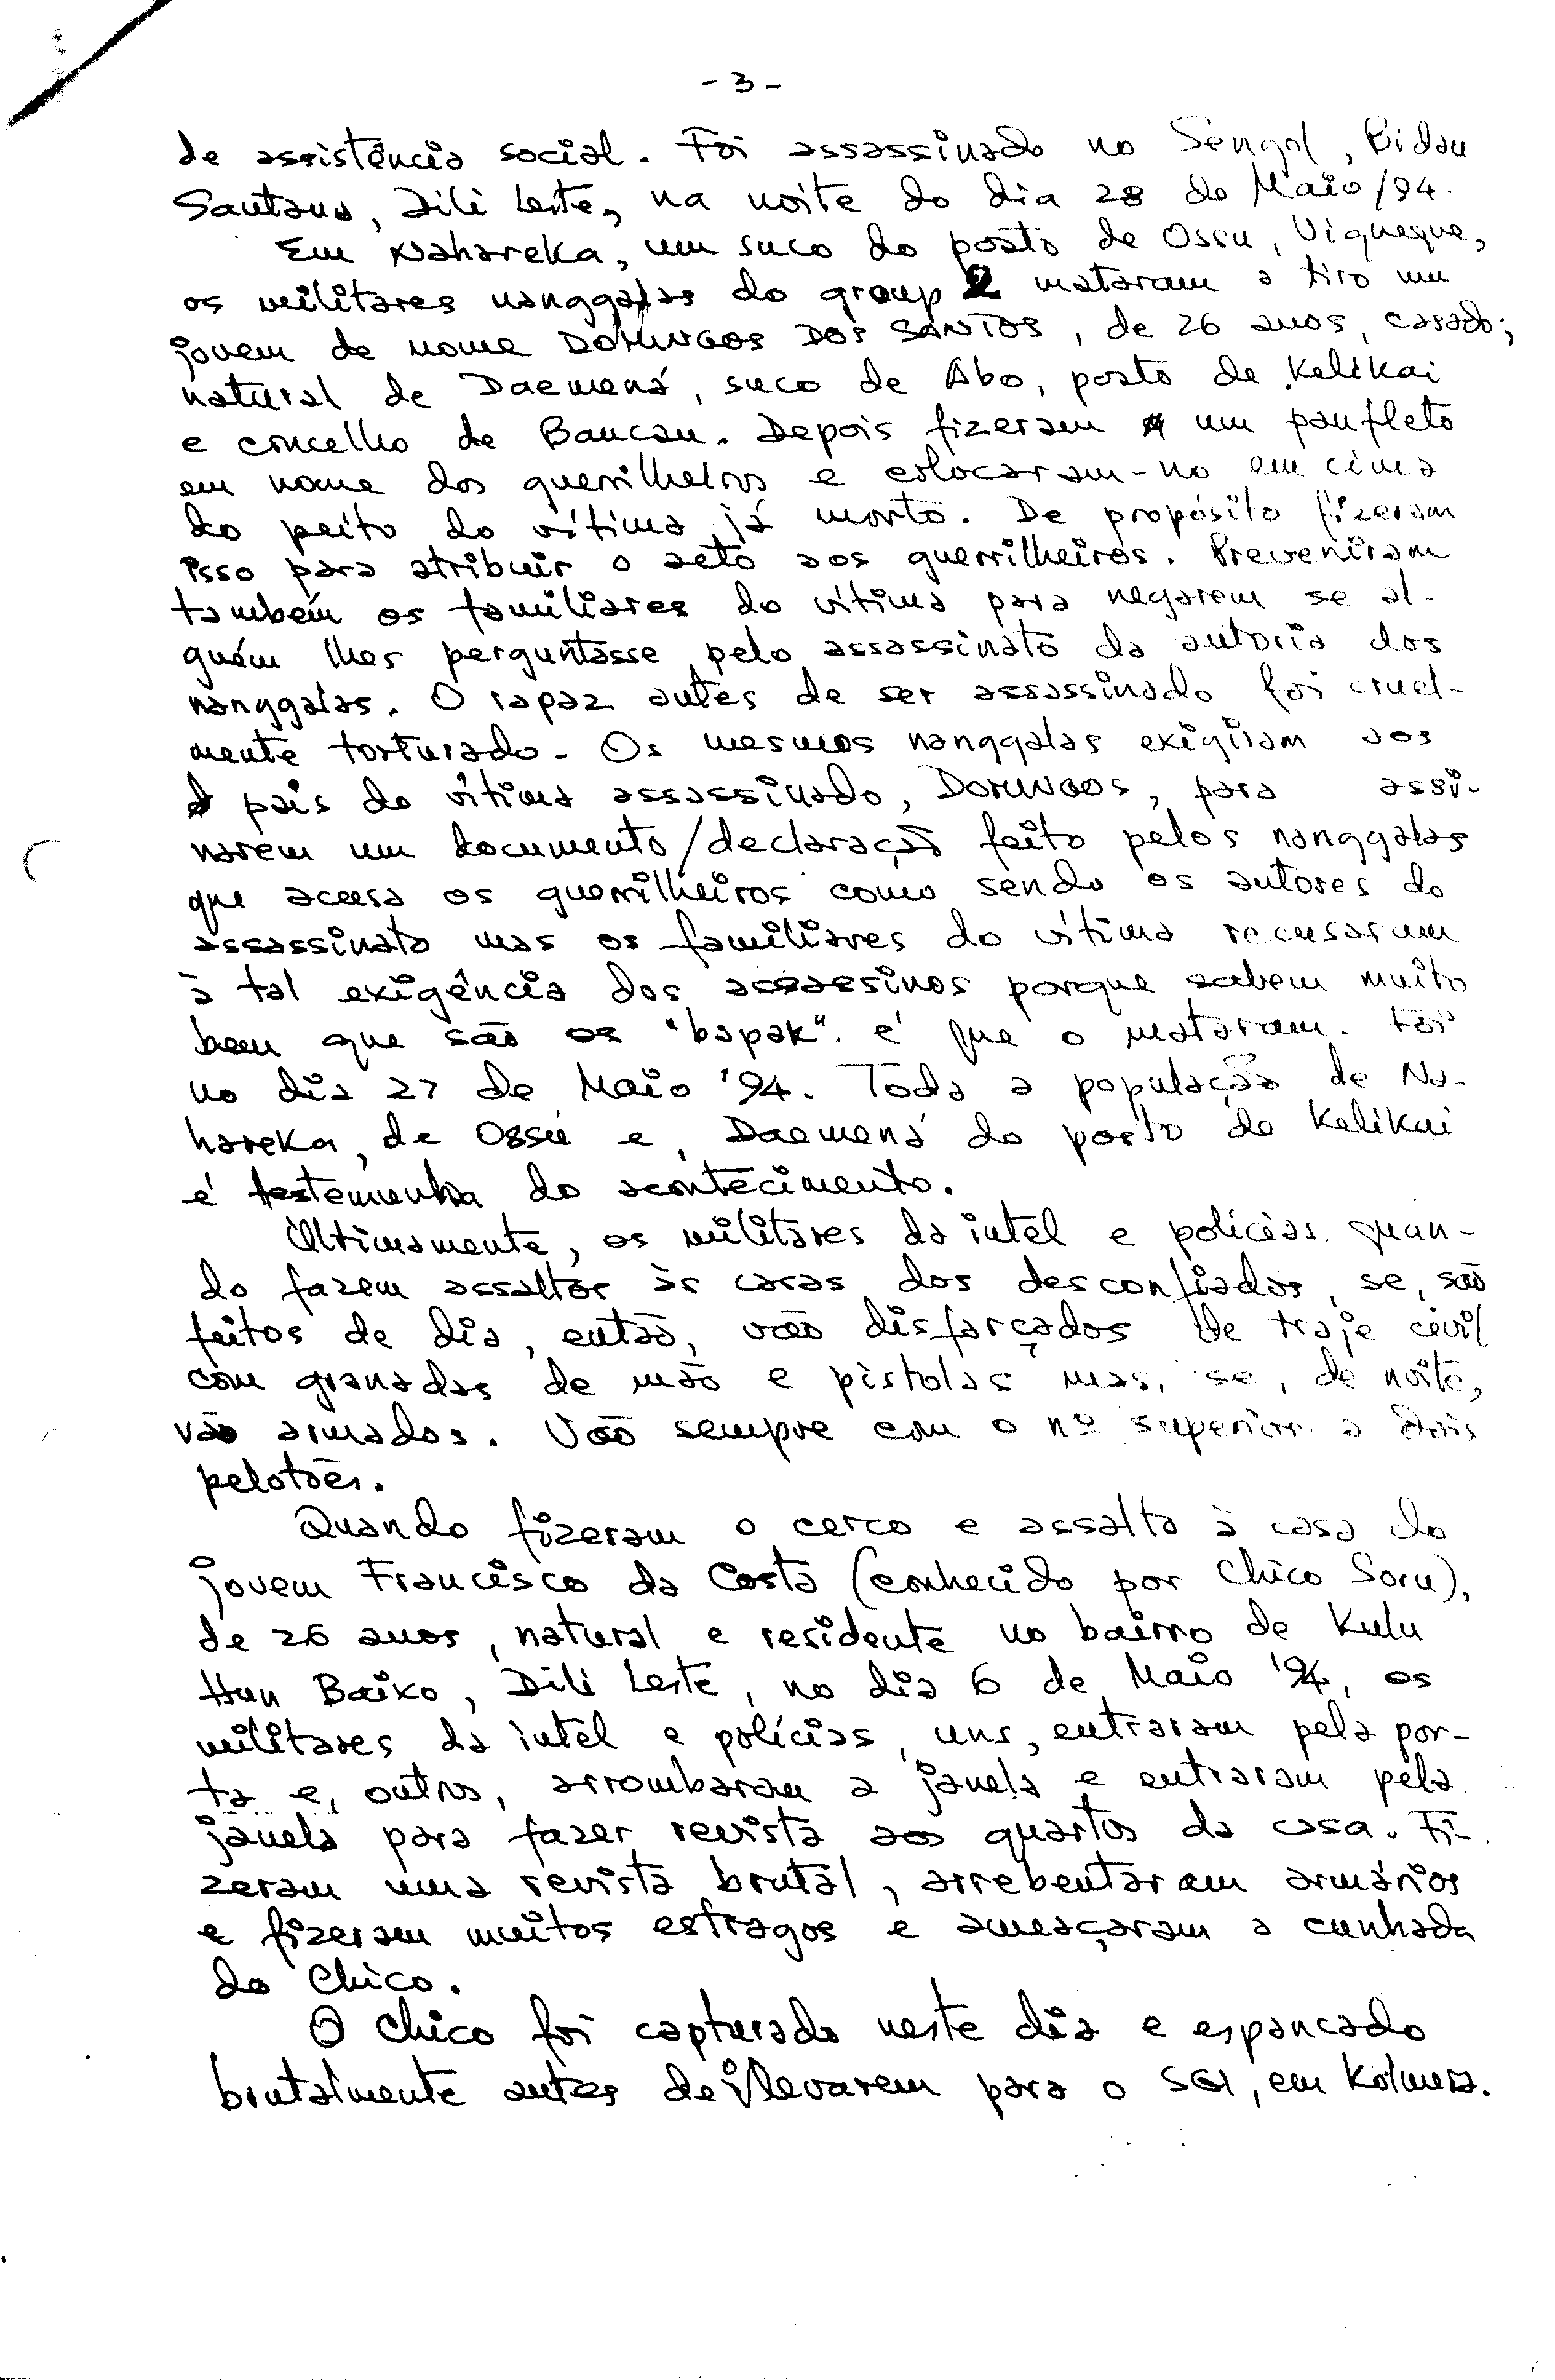 - 3 -
de assistência social. Foi assassinado no Sengol, Bidau
Santana, Dili Leste, na noite do dia 28 de Maio/94.
Em Nahareka, um suco do posto de Ossu, Viqueque,
os militares nanggalas do group 2 mataram a tiro um
jovem de nome DOMINGOS DOS SANTOS, de 26 anos, casado;
natural de Daemená, suco de Abo, posto de Kelikai
e concelho de Baucau. Depois fizeram um panfleto
em nome dos guerrilheiros e colocaram-no em cima
do peito do vítima já morto. De propósito fizeram
isso para atribuir o acto aos guerrilheiros. Preveniram
também os familiares do vítima para negarem se al-
guém lhes perguntasse pelo assassinato da autoria dos
nanggalas. O rapaz antes de ser assassinado foi cruel-
mente torturado. Os mesmos nanggalas exigiram aos
pais do vítima assassinado, DOMINGOS, para assi-
narem um documento/declaração feito pelos nanggalas
que acusa os guerrilheiros como sendo os autores do
assassinato mas os familiares do vítima recusaram
à tal exigência dos assassinos porque sabem muito
bem que são os "bapak" é que o mataram. Foi
no dia 27 de Maio '94. Toda a população de Na-
hareka, de Ossu e, Daemená do posto de Kelikai
é testemunha do acontecimento.
Ultimamente, os militares da intel e polícias quan-
do fazem assaltos às casas dos desconfiados, se, são
feitos de dia, então, vão disfarçados de traje civil
com granadas de mão e pistolas mas, se, de noite,
vão armados. Vão sempre com o nº superior a dois
pelotões.
Quando fizeram o cerco e assalto à casa do
jovem Francisco da Costa (conhecido por Chico Soru),
de 26 anos, natural e residente no bairro de Kulu
Hun Baixo, Dili Leste, no dia 6 de Maio '94, os
militares da intel e polícias, uns, entraram pela por-
ta e, outros, arrombaram a janela e entraram pela
janela para fazer revista aos quartos da casa. Fi-
zeram uma revista brutal, arrebentaram armários
e fizeram muitos estragos e ameaçaram a cunhada
do Chico.
O Chico foi capturado neste dia e espancado
brutalmente antes de levarem para o SGI, em Kolmera.